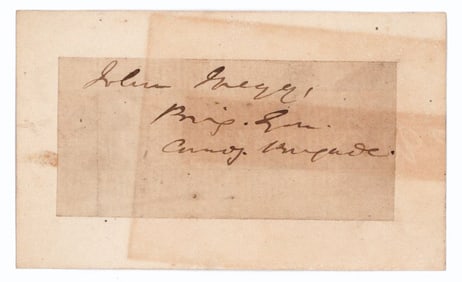 John Gregg,
Brig. Gen.
Comdg. Brigade.